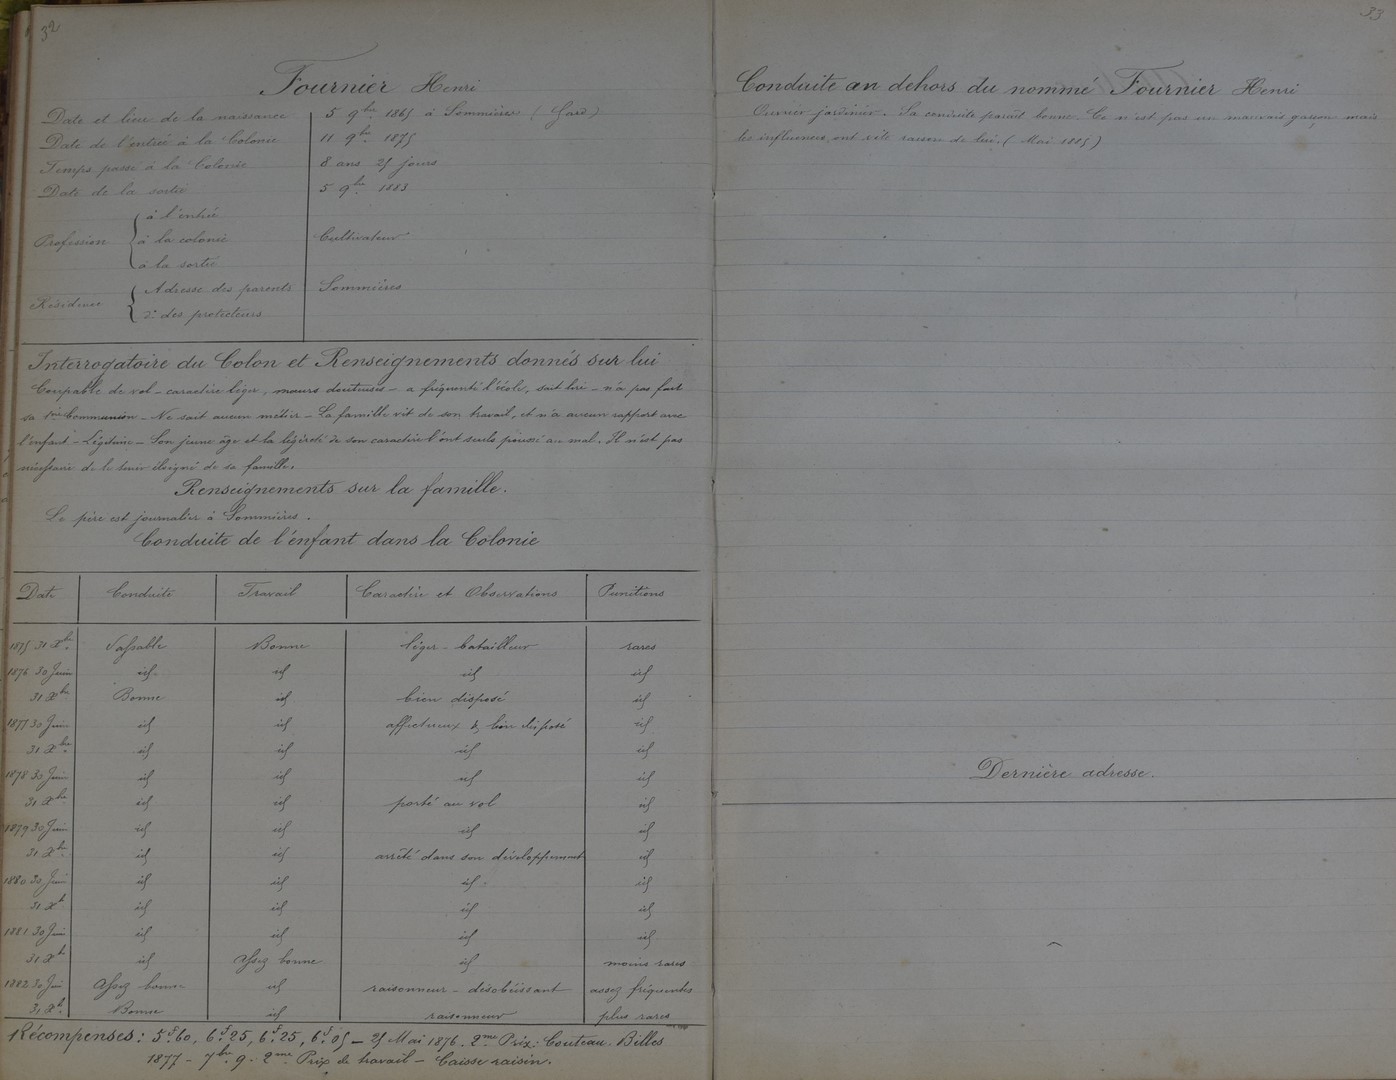 32
Fournier Henri
Date et lieu de la naissance 5 9bre 1865 à Sommières (Gard)
Date de l'entrée à la Colonie 11 9bre 1875
Temps passé à la Colonie 8 ans 25 jours
Date de la sortie 5 9bre 1883
à l'entrée
Profession à la colonie Cultivateur
à la sortie
Adresse des parents Sommières
Résidence
d° des protecteurs
Interrogatoire du Colon et Renseignements donnés sur lui
Coupable de vol - caractère léger, mœurs douteuses - a fréquenté l'école, sait lire - n'a pas fait
sa 1ère Communion - Ne sait aucun métier - La famille vit de son travail, et n'a aucun rapport avec
l'enfant - Légitime - Son jeune âge et la légèreté de son caractère l'ont seuls poussé au mal. Il n'est pas
nécessaire de le tenir éloigné de sa famille.
Renseignements sur la famille.
Le père est journalier à Sommières.
Conduite de l'enfant dans la Colonie
Date Conduite Travail Caractère et Observations Punitions
1875 31 Xbre Passable Bonne léger - batailleur rares
1876 30 Juin id id id id
31 Xbre Bonne id bien disposé id
1877 30 Juin id id affectueux & bien disposé id
31 Xbre id id id id
1878 30 Juin id id id id
31 Xbre id id porté au vol id
1879 30 Juin id id id id
31 Xbre id id arrêté dans son développement id
1880 30 Juin id id id id
31 Xb id id id id
1881 30 Juin id id id id
31 Xb id Assez bonne id moins rares
1882 30 Juin Assez bonne id raisonneur - désobéissant assez fréquentes
31 Xb Bonne id raisonneur plus rares
Récompenses : 5f.60, 6f.25, 6f.25, 6f.05 - 25 Mai 1876. 2me Prix: Couteau. Billes
1877 - 7bre 9. 2me Prix de travail - Caisse raisin.
33
Conduite au dehors du nommé Fournier Henri
Ouvrier jardinier. Sa conduite paraît bonne. Ce n'est pas un mauvais garçon mais
les influences ont vite raison de lui. (Mai 1885)
Dernière adresse.